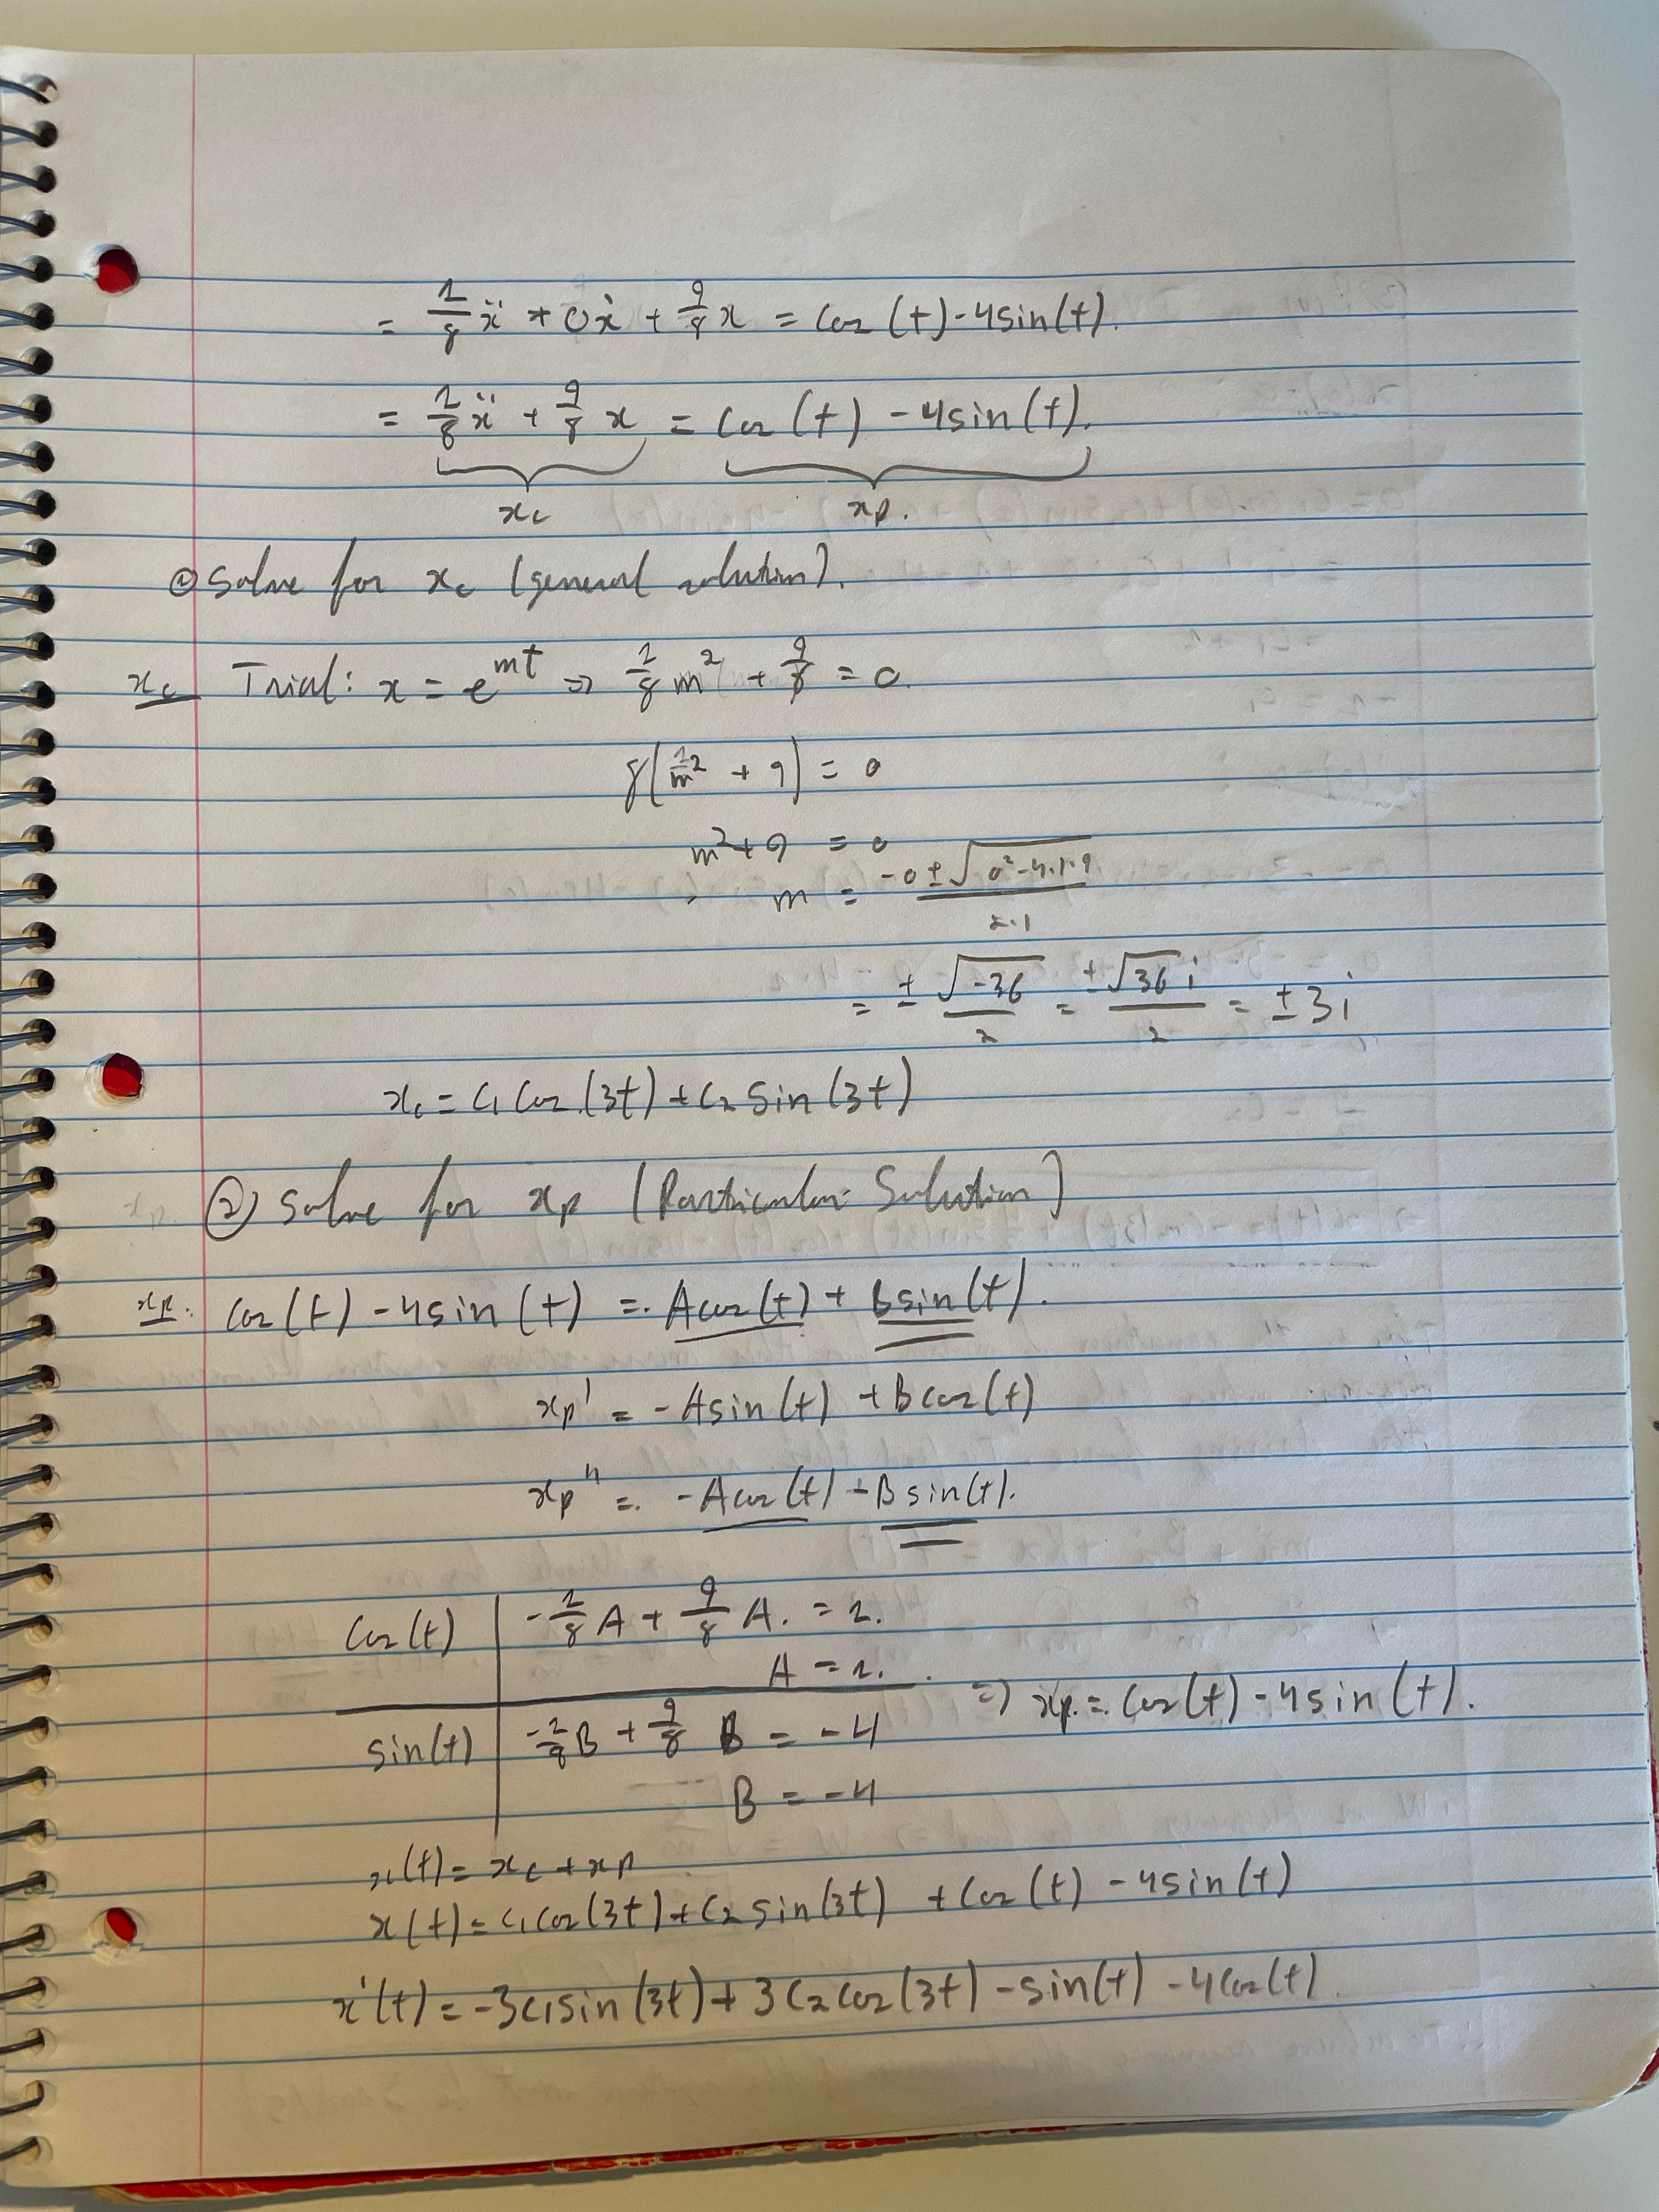 = 1/8 ẍ + 0ẋ + 9/8 x = cos(t) - 4sin(t).
= 1/8 ẍ + 9/8 x = cos(t) - 4sin(t).
xc xp.
① Solve for xc (general solution).
xc Trial: x = e^mt => 1/8 m² + 9/8 = 0.
8(1m² + 9) = 0
m² + 9 = 0
m = (-0 ± √(0² - 4·1·9))/(2·1)
= ± √-36/2 = ±√36 i/2 = ±3i
xc = c1 cos(3t) + c2 sin(3t)
② Solve for xp (Particular Solution)
xp: cos(t) - 4sin(t) = Acos(t) + Bsin(t).
xp' = -Asin(t) + Bcos(t)
xp" = -Acos(t) - Bsin(t).
cos(t) | -1/8 A + 9/8 A. = 1.
A = 1.
=> xp = cos(t) - 4sin(t).
sin(t) | -1/8 B + 9/8 B = -4
B = -4
x(t) = xc + xp
x(t) = c1 cos(3t) + c2 sin(3t) + cos(t) - 4sin(t)
x'(t) = -3c1 sin(3t) + 3c2 cos(3t) - sin(t) - 4cos(t).